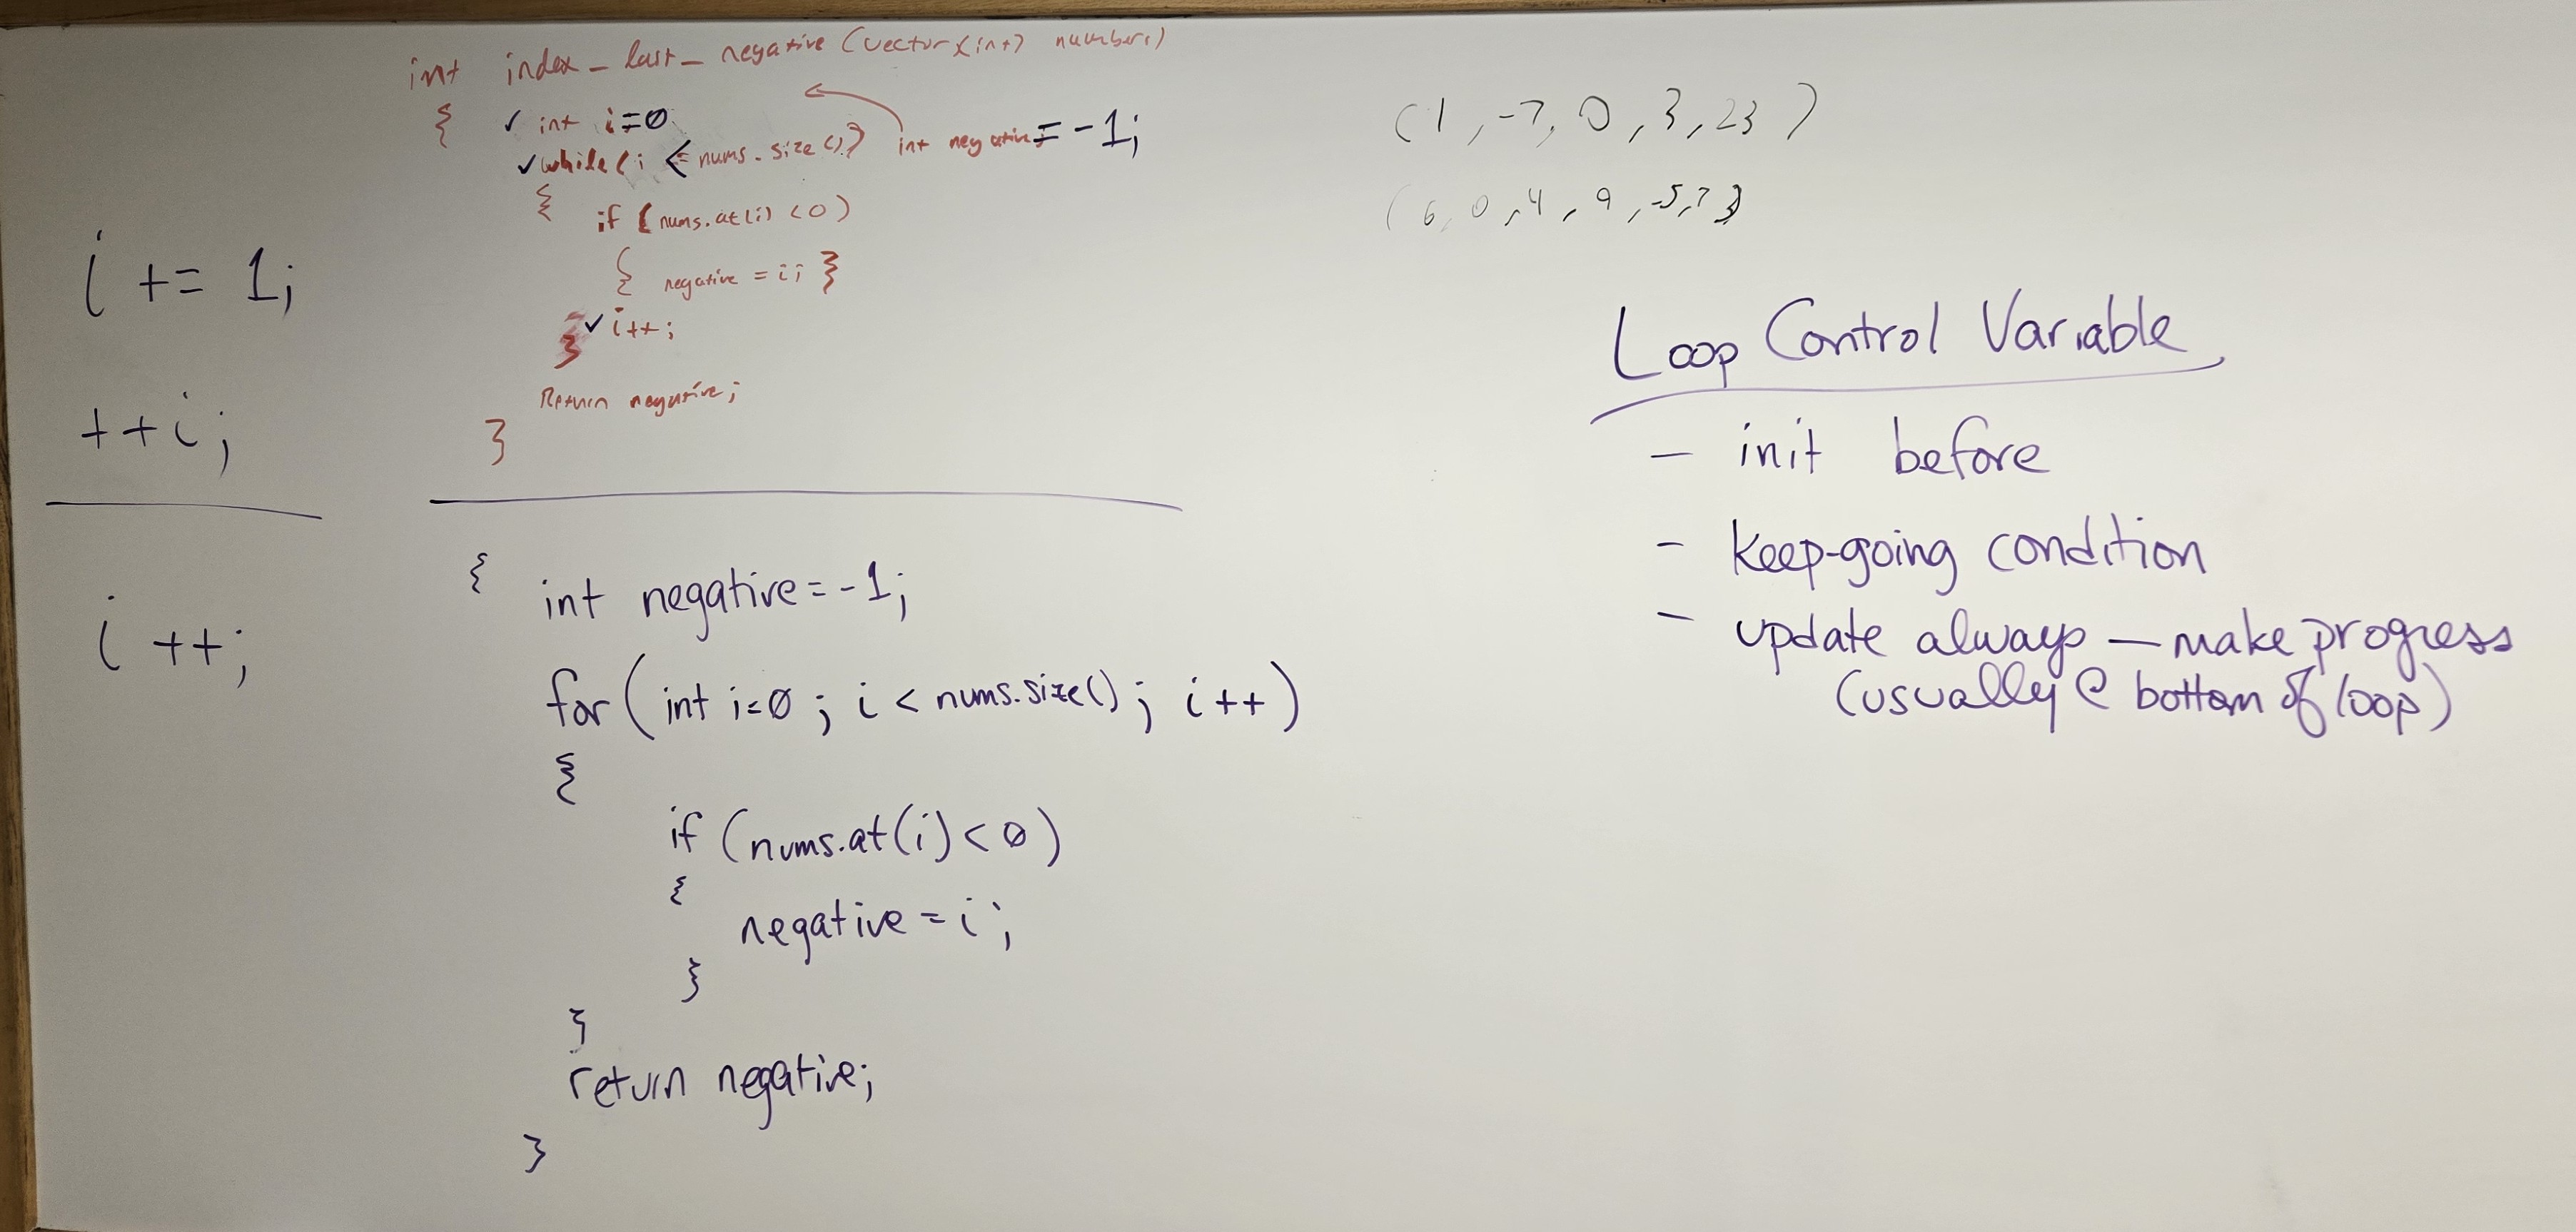 int index_last_negative (vector<int> numbers)
{ ✓ int i=0
int negative = -1;
✓ while (i < nums.size())
{
if (nums.at(i) <0)
{ negative = i; }
} ✓ i++;
Return negative;
}
i += 1;
++i;
i ++;
{ int negative = -1;
for (int i=0 ; i < nums.size() ; i++)
{
if (nums.at(i) < 0)
{
negative = i ;
}
}
return negative;
}
(1, -7, 0, 3, 23 )
( 6, 0, 4, 9, -5, 7 )
Loop Control Variable
- init before
- keep-going condition
- update always — make progress
(usually @ bottom of loop)